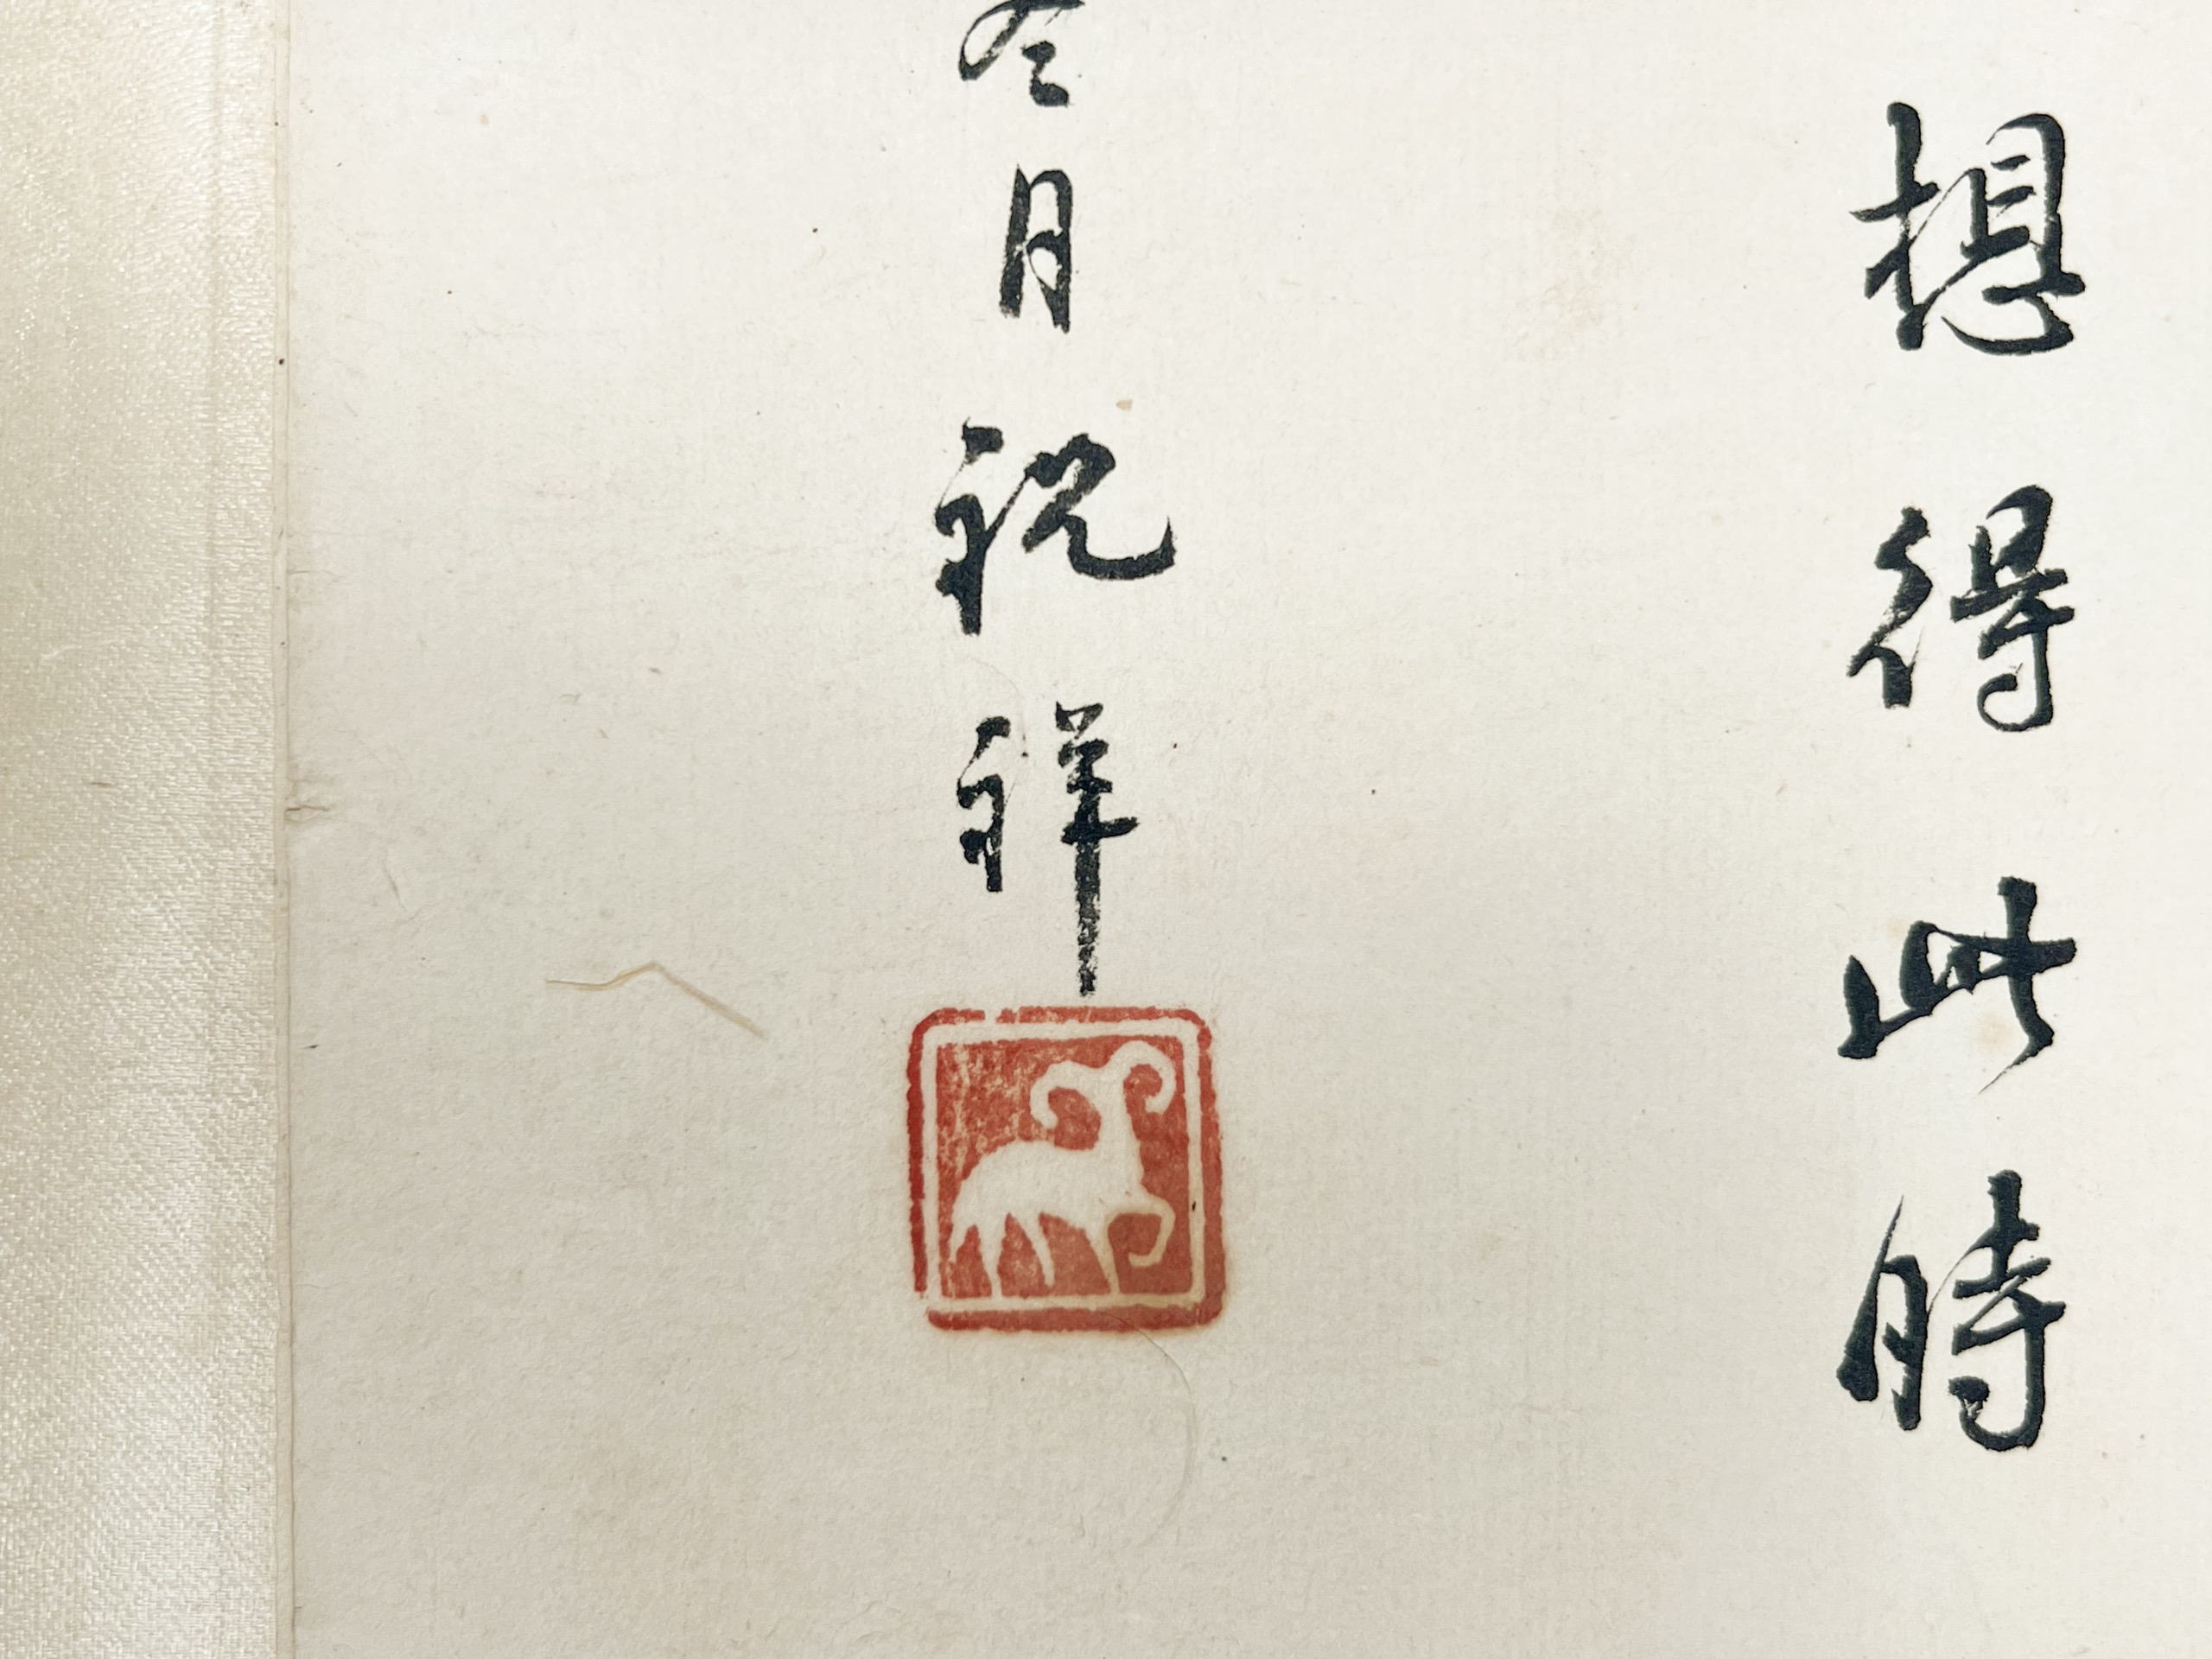 想得此時
冬月祝祥